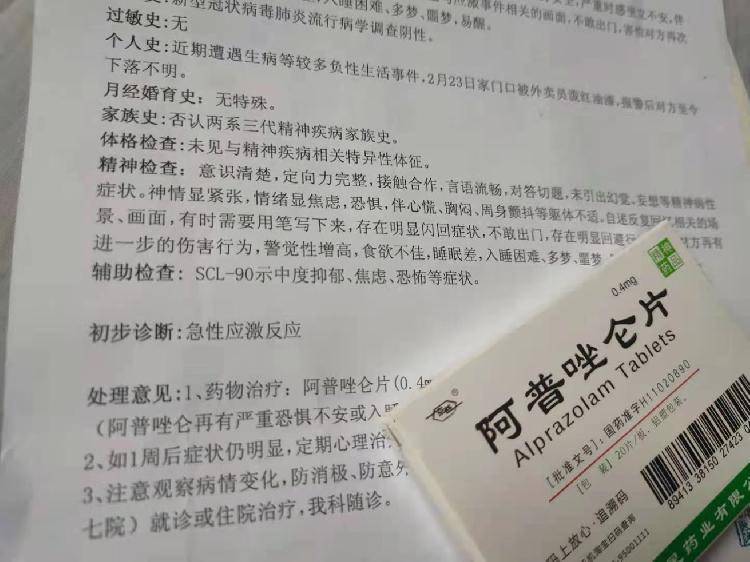 入睡困难、多梦、噩梦,易醒。
应激事件相关的画面,不敢出门,害怕对方再次
新型冠状病毒肺炎流行病学调查阴性。
过敏史:无
个人史:近期遭遇生病等较多负性生活事件,2月23日家门口被外卖员泼红油漆,报警后对方至今
下落不明。
月经婚育史:无特殊。
家族史:否认两系三代精神疾病家族史。
体格检查:未见与精神疾病相关特异性体征。
精神检查:意识清楚,定向力完整,接触合作,言语流畅,对答切题,未引出幻觉,妄想等精神病性
症状。神情显紧张,情绪显焦虑,恐惧,伴心慌、胸闷、周身颤抖等躯体不适,自述反复回忆相关的场
景、画面,有时需要用笔写下来,存在明显闪回症状,不敢出门,存在明显回避行 对方再有
进一步的伤害行为,警觉性增高,食欲不佳,睡眠差,入睡困难、多梦、噩梦
辅助检查: SCL-90示中度抑郁、焦虑、恐怖等症状。
初步诊断:急性应激反应
处理意见:1、药物治疗:阿普唑仑片(0.4m
(阿普唑仑再有严重恐惧不安或入
2、如1周后症状仍明显,定期心理治
3、注意观察病情变化,防消极、防意外
七院)就诊或住院治疗,我科随诊。
精神
药品
0.4mg
阿普唑仑片
Alprazolam Tablets
[批准文号]:国药准字H11020890
[包 装] 20片/板,铝塑包装。
89413 38150 27423 0
码上放心·追溯码
95001111
药业有限公